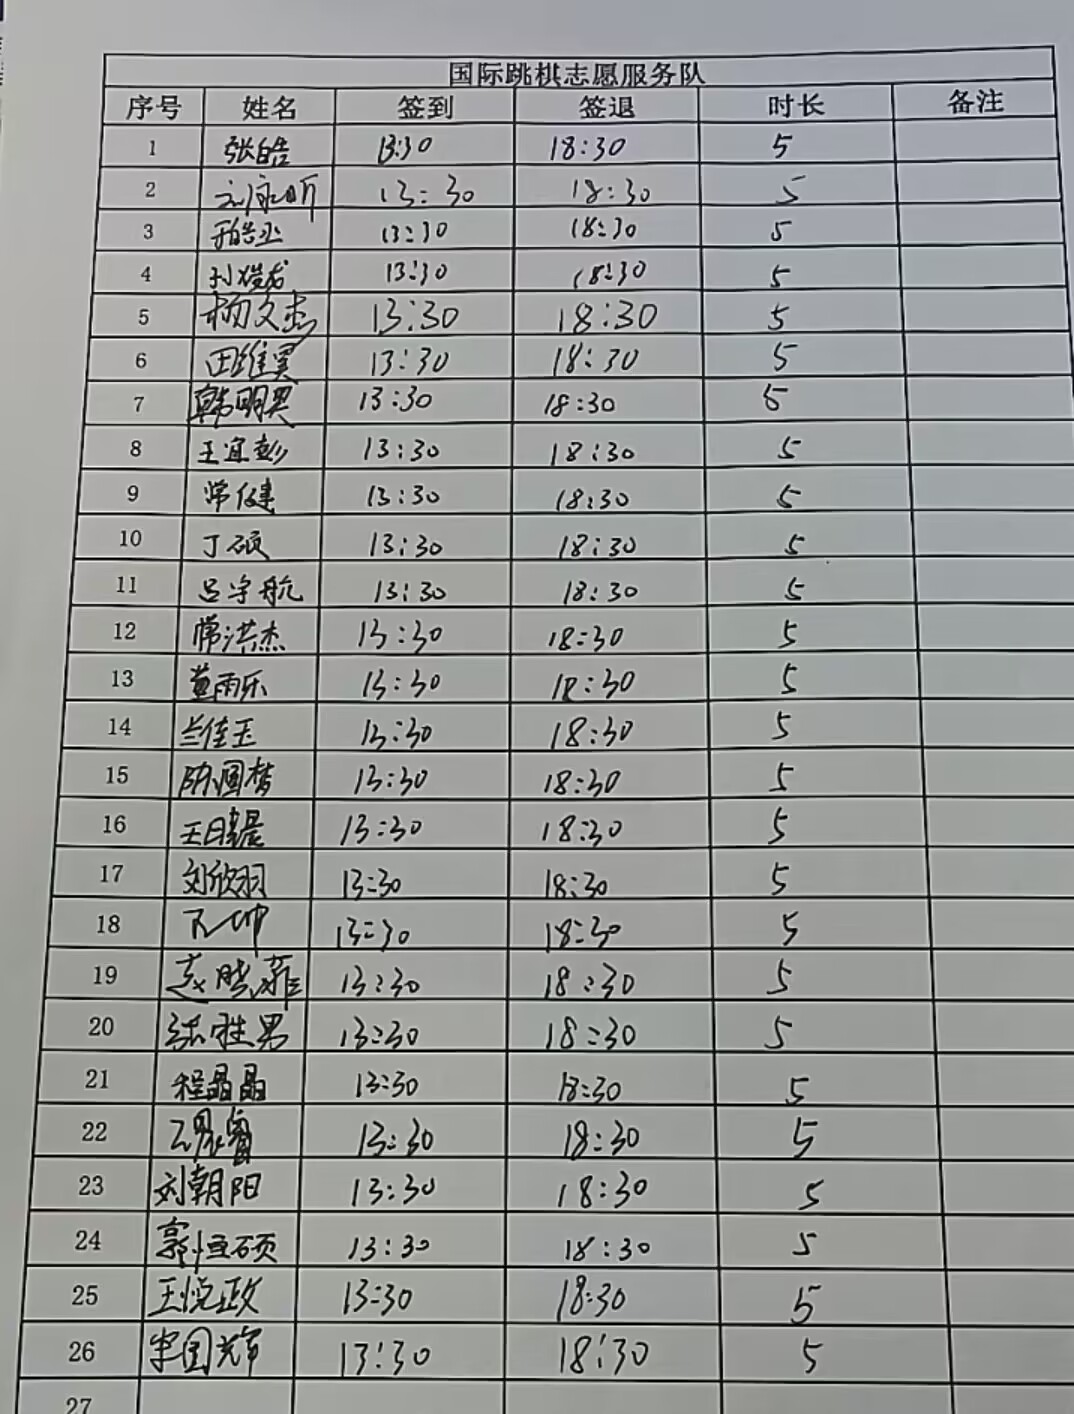 国际跳棋志愿服务队
序号 姓名 签到 签退 时长 备注
1 张皓 13:30 18:30 5
2 13:30 18:30 5
3 13:30 18:30 5
4 13:30 18:30 5
5 杨文杰 13:30 18:30 5
6 田维翼 13:30 18:30 5
7 韩明昊 13:30 18:30 5
8 王宜彭 13:30 18:30 5
9 常健 13:30 18:30 5
10 丁硕 13:30 18:30 5
11 吕宇航 13:30 18:30 5
12 常洪杰 13:30 18:30 5
13 董雨乐 13:30 18:30 5
14 兰佳玉 13:30 18:30 5
15 陈圆梦 13:30 18:30 5
16 13:30 18:30 5
17 刘欣羽 13:30 18:30 5
18 13:30 18:30 5
19 赵晓菲 13:30 18:30 5
20 张胜男 13:30 18:30 5
21 程晶晶 13:30 18:30 5
22 13:30 18:30 5
23 刘朝阳 13:30 18:30 5
24 郭恒硕 13:30 18:30 5
25 王悦政 13:30 18:30 5
26 李国辉 13:30 18:30 5
27